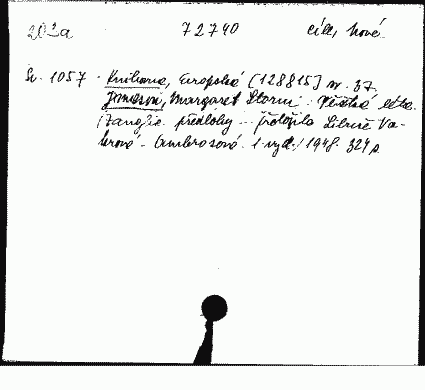 203a 72740 cíl, Nové
Sv. 1057 - Knihovna, Evropská [128815] sv. 37.
Jameson, Margaret Storm: Všední léta.
/Z anglic. předlohy - přeložila Libuše Va-
Ambrosová. 1. vyd./ 1948. 324 s.